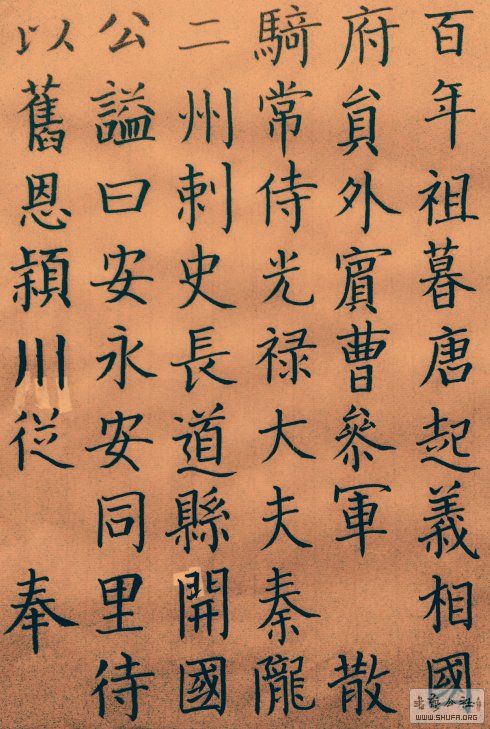 百年祖暮唐起義相國
府員外賓曹叅軍散
騎常侍光禄大夫秦隴
二州刺史長道縣開國
公謚曰安永安同里待
以舊恩潁川從奉
WWW.SHUFA.ORG